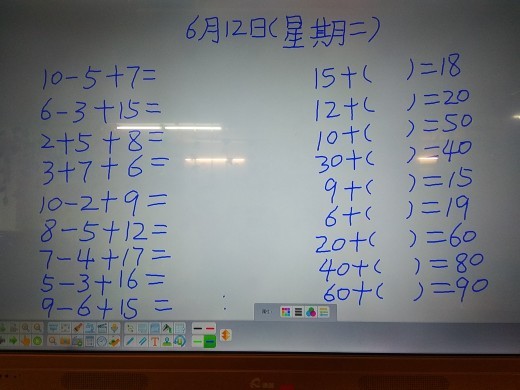 6月12日(星期二)
10-5+7=
6-3+15=
2+5+8=
3+7+6=
10-2+9=
8-5+12=
7-4+17=
5-3+16=
9-6+15=
15+( )=18
12+( )=20
10+( )=50
30+( )=40
9+( )=15
6+( )=19
20+( )=60
40+( )=80
60+( )=90